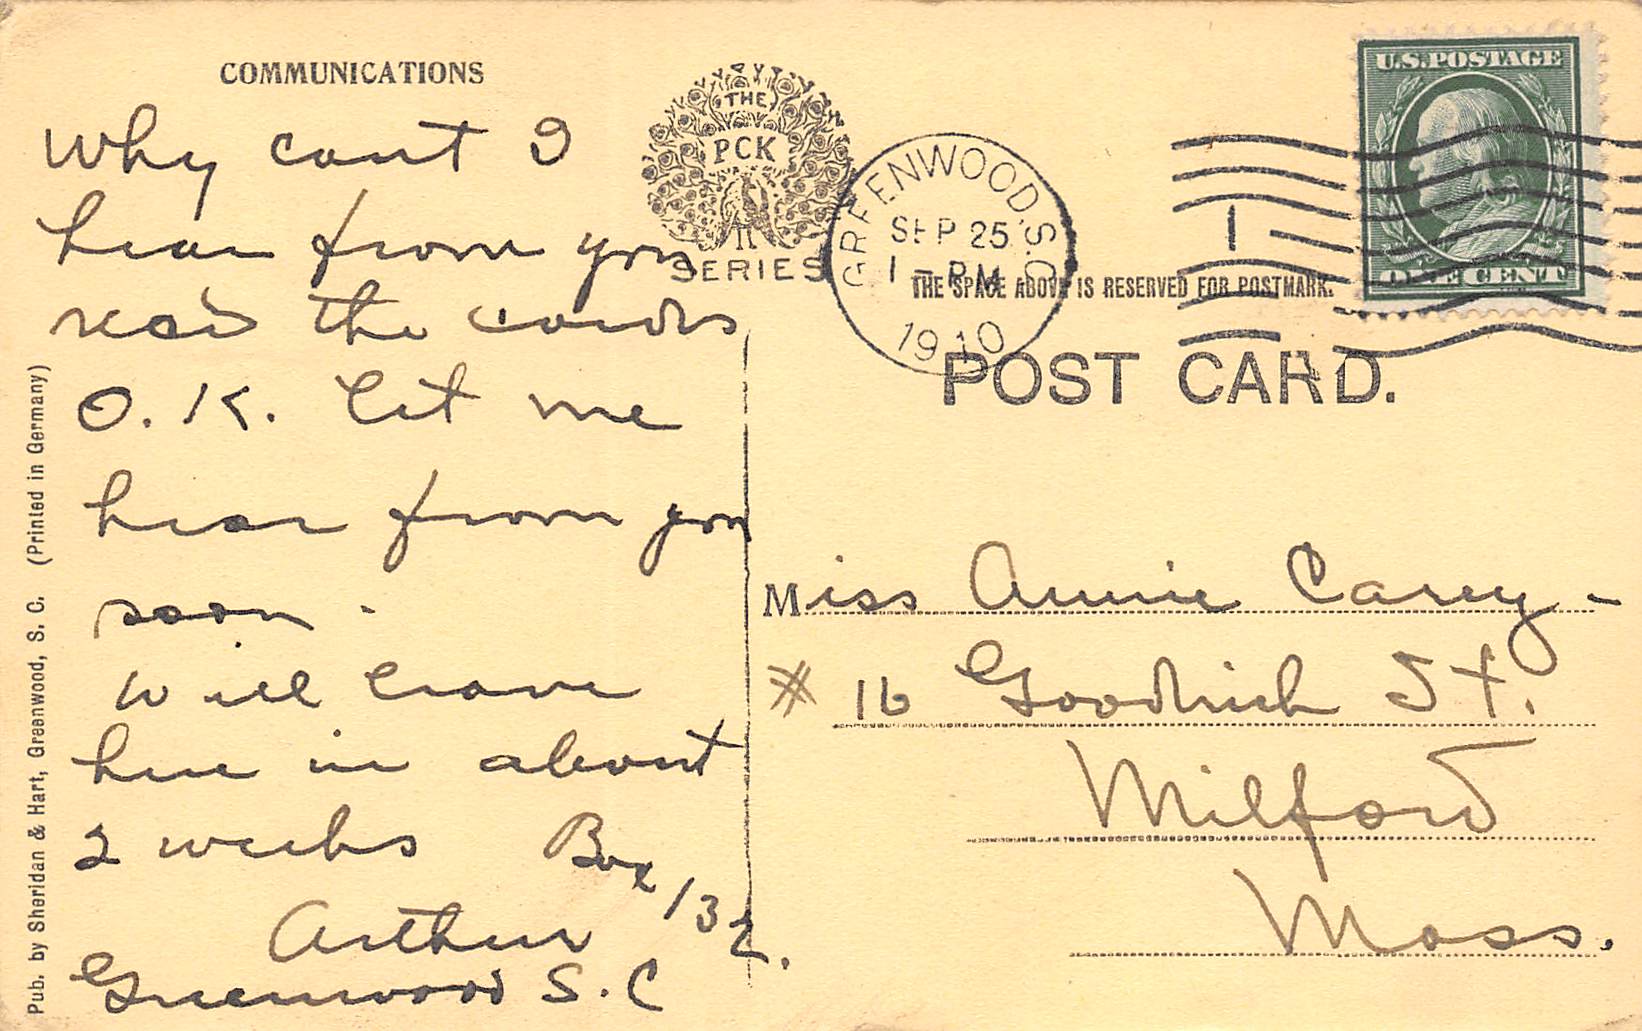 COMMUNICATIONS
Why cant I
hear from you
recd the cards
O.K. Let me
hear from you
soon.
Will leave
here in about
2 weeks Box 132.
Arthur
Greenwood S.C
Pub. by Sheridan & Hart, Greenwood, S. C. (Printed in Germany)
THE
PCK
SERIES
GREENWOOD, S.C.
SEP 25
1 - PM
1910
1
U.S. POSTAGE
ONE CENT
THE SPACE ABOVE IS RESERVED FOR POSTMARK.
POST CARD.
Miss Annie Carey -
# 16 Goodrich St.
Milford
Mass.